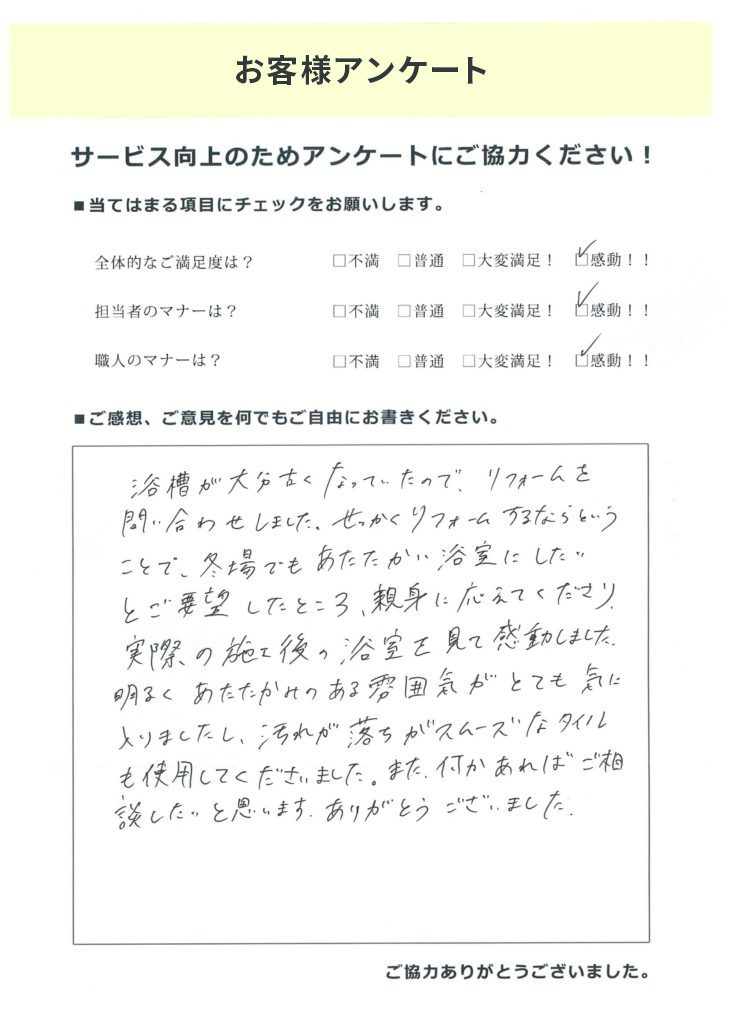 お客様アンケート
サービス向上のためアンケートにご協力ください！
■当てはまる項目にチェックをお願いします。
全体的なご満足度は？ □不満 □普通 □大変満足！ ☑感動！！
担当者のマナーは？ □不満 □普通 □大変満足！ ☑感動！！
職人のマナーは？ □不満 □普通 □大変満足！ ☑感動！！
■ご感想、ご意見を何でもご自由にお書きください。
浴槽が大分古くなっていたので、リフォームを
問い合わせしました。せっかくリフォームするならという
ことで、冬場でもあたたかい浴室にしたい
とご要望したところ、親身に応えてくださり、
実際の施工後の浴室を見て感動しました。
明るくあたたかみのある雰囲気がとても気に
入りましたし、汚れが落ちがスムーズなタイル
も使用してくださいました。また、何かあればご相
談したいと思います。ありがとうございました。
ご協力ありがとうございました。